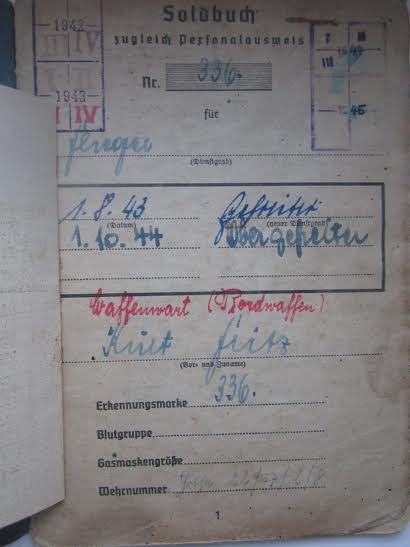 Soldbuch
zugleich Personalausweis
1942
III IV
1943
IV
45
Nr. 336.
für
Flieger
(Dienstgrad)
1. 8. 43 Gefreiter
(Datum) (neuer Dienstgrad)
1. 10. 44 Obergefreiter
Waffenwart (Bordwaffen)
Kurt
(Vor- und Zuname)
Erkennungsmarke 336.
Blutgruppe
Gasmaskengröße
Wehrnummer
1